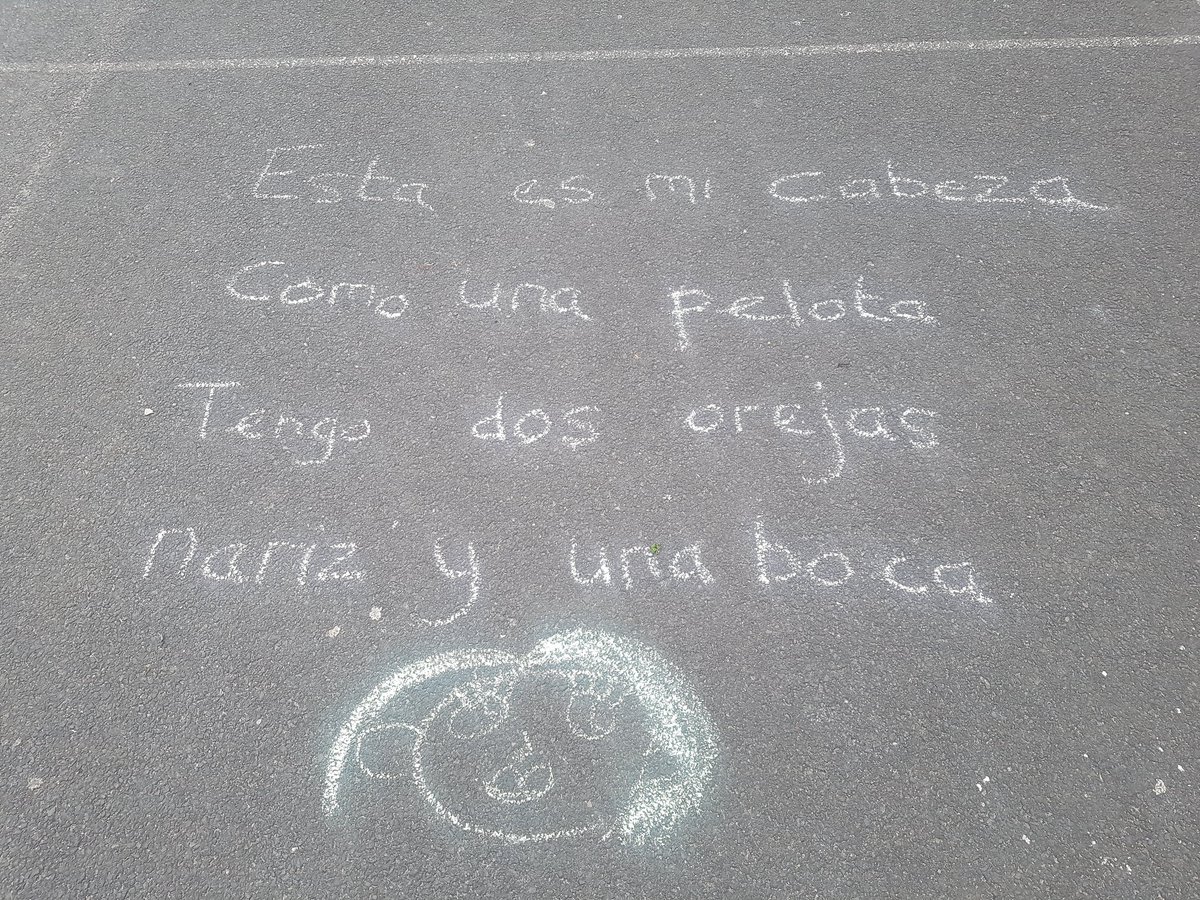 Esta es mi cabeza
Como una pelota
Tengo dos orejas
nariz y una boca